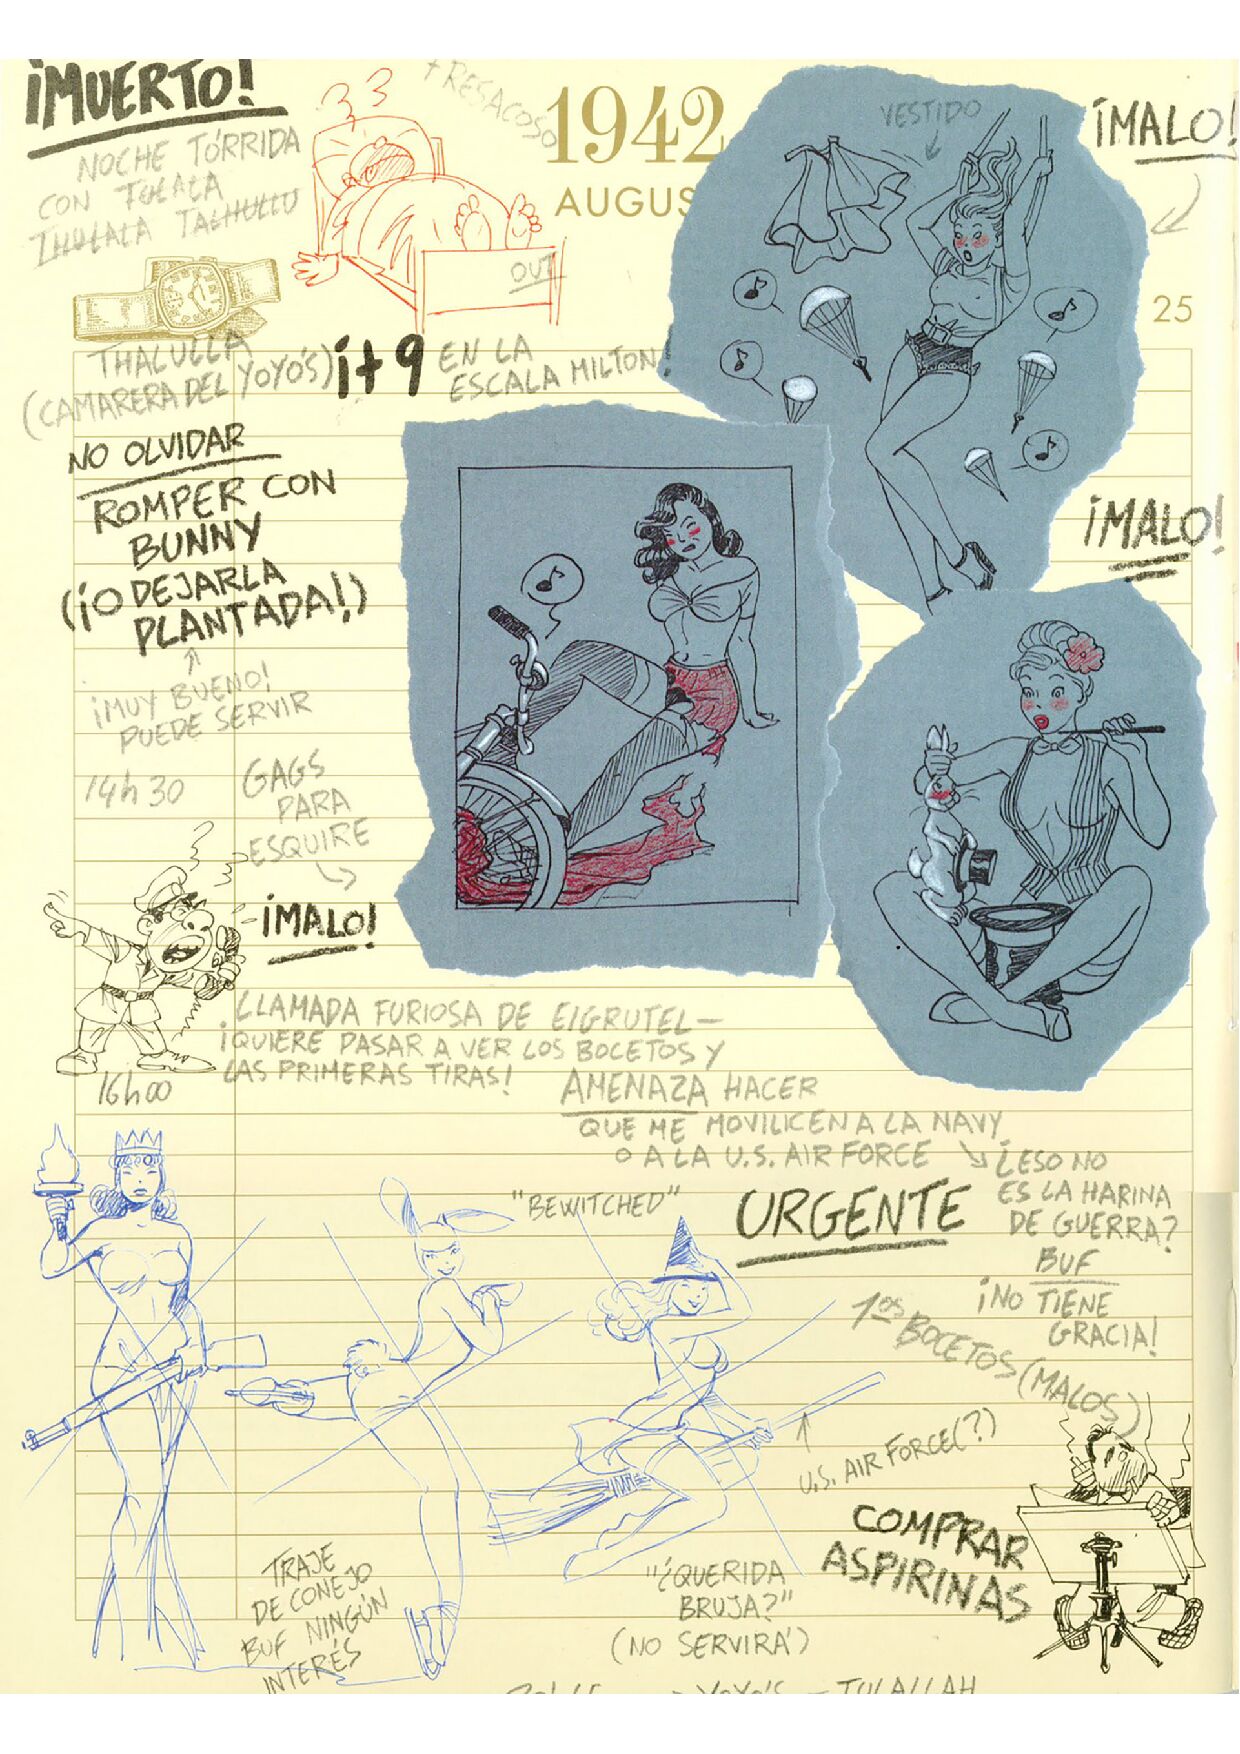 ¡MUERTO!
+ RESACOSO
NOCHE TÓRRIDA
CON TULALA
THULALA TALHULLU
OUT
1942
AUGUS
25
VESTIDO
¡MALO!
THALULLA
(CAMARERA DEL YOYO'S)
¡+9 EN LA
ESCALA MILTON!
NO OLVIDAR
ROMPER CON
BUNNY
(¡O DEJARLA
PLANTADA!)
¡MUY BUENO!
PUEDE SERVIR
¡MALO!
14h 30
GAGS
PARA
ESQUIRE
¡MALO!
LLAMADA FURIOSA DE EIGRUTEL—
¡QUIERE PASAR A VER LOS BOCETOS Y
LAS PRIMERAS TIRAS!
16h00
AMENAZA HACER
QUE ME MOVILICEN A LA NAVY
O A LA U.S. AIR FORCE
¿ESO NO
ES LA HARINA
DE GUERRA?
BUF
¡NO TIENE
GRACIA!
"BEWITCHED"
URGENTE
1os BOCETOS (MALOS)
U.S. AIR FORCE(?)
COMPRAR
ASPIRINAS
TRAJE
DE CONEJO
BUF NINGÚN
INTERÉS
"¿QUERIDA
BRUJA?"
(NO SERVIRÁ)
YOYO'S — TULALLAH